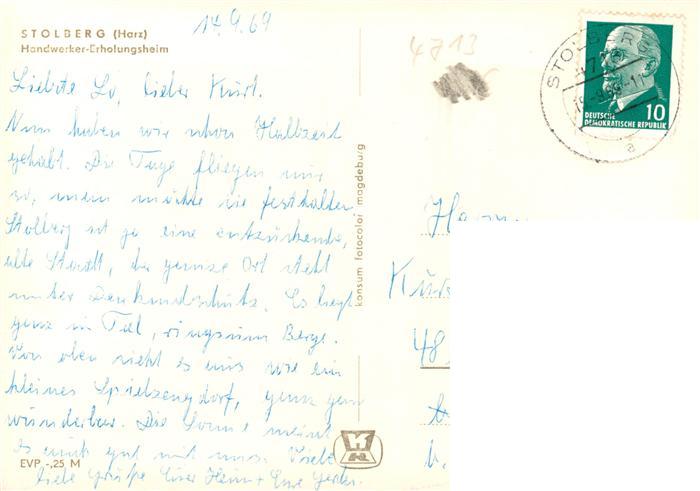 14.9.69
STOLBERG (Harz)
Handwerker-Erholungsheim
4713
Liebste Lo, lieber Kurt.
Nun haben wir schon Halbzeit
gehabt. Die Tage fliegen nur
so, man möchte sie festhalten.
Stolberg ist ja eine entzückende,
alte Stadt, der ganze Ort steht
unter Denkmalschutz. Es liegt
ganz im Tal, ringsum Berge.
Von oben sieht es aus wie ein
kleines Spielzeugdorf, ganz ganz
wunderbar. Die Sonne meint
es auch gut mit uns. Viele
liebe Grüße Euer Heinz + Eure Gerda.
EVP -,25 M
konsum fotocolor magdeburg
STOLBERG
47
15.-9.69-11
a
10
DEUTSCHE
DEMOKRATISCHE REPUBLIK
48